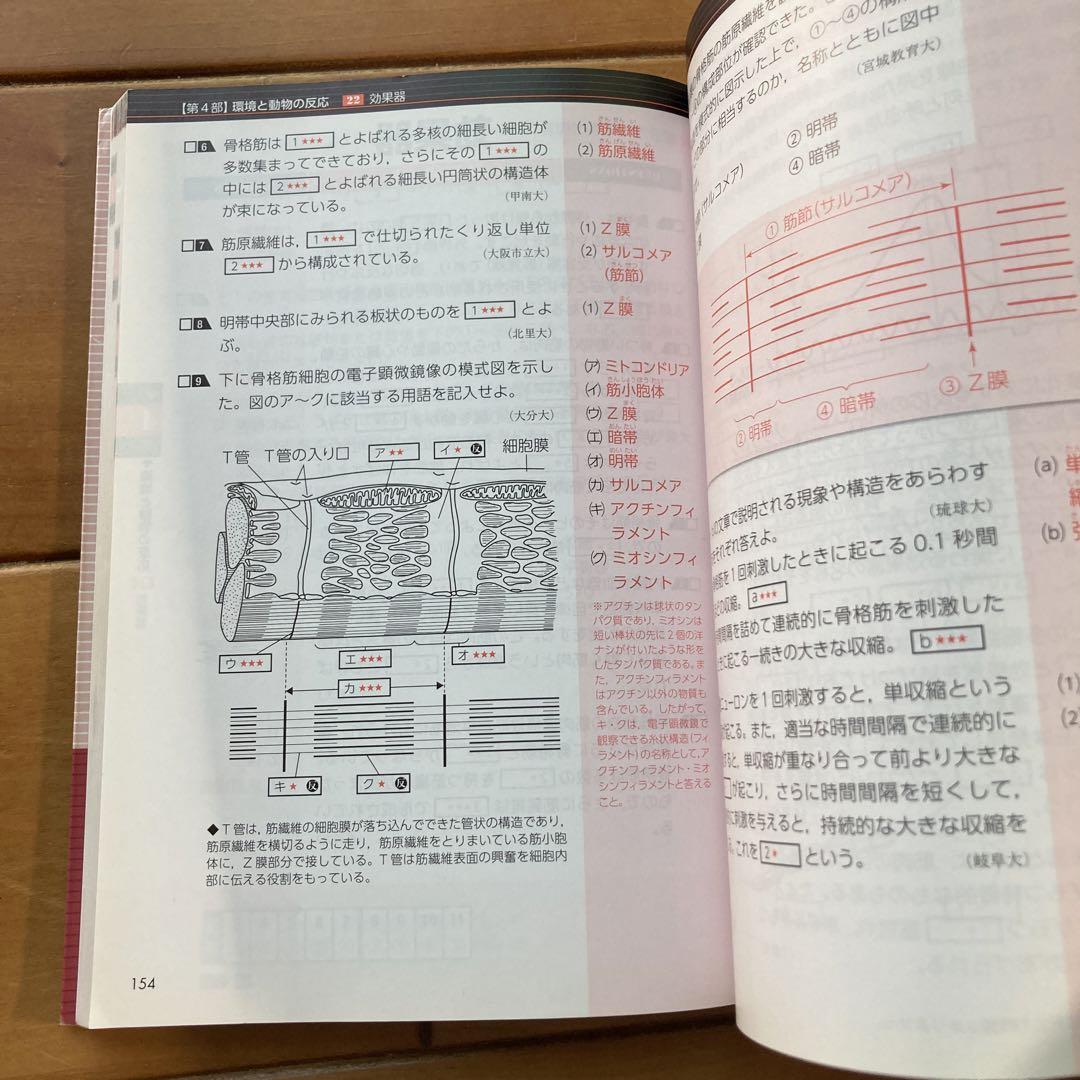 【第4部】環境と動物の反応 22 効果器
6 骨格筋は 1★★★ とよばれる多核の細長い細胞が
多数集まってできており，さらにその 1★★★ の
中には 2★★★ とよばれる細長い円筒状の構造体
が束になっている。 （甲南大）
(1) 筋繊維
(2) 筋原繊維
7 筋原繊維は，1★★★ で仕切られたくり返し単位
2★★★ から構成されている。 （大阪市立大）
(1) Z膜
(2) サルコメア
（筋節）
8 明帯中央部にみられる板状のものを 1★★★ とよ
ぶ。 （北里大）
(1) Z膜
9 下に骨格筋細胞の電子顕微鏡像の模式図を示し
た。図のア～クに該当する用語を記入せよ。
（大分大）
(ア) ミトコンドリア
(イ) 筋小胞体
(ウ) Z膜
(エ) 暗帯
(オ) 明帯
(カ) サルコメア
(キ) アクチンフィ
ラメント
(ク) ミオシンフィ
ラメント
T管 T管の入り口 ア★★ イ★ 反 細胞膜
ウ★★★ エ★★★ オ★★★
カ★★★
キ★ 反 ク★ 反
※アクチンは球状のタン
パク質であり，ミオシンは
短い棒状の先に2個の洋
ナシが付いたような形を
したタンパク質である。ま
た，アクチンフィラメント
はアクチン以外の物質も
含んでいる。したがって，
キ・クは，電子顕微鏡で
観察できる糸状構造（フィ
ラメント）の名称として，ア
クチンフィラメント・ミオ
シンフィラメントと答える
こと。
◆T管は，筋繊維の細胞膜が落ち込んでできた管状の構造であり，
筋原繊維を横切るように走り，筋原繊維をとりまいている筋小胞
体に，Z膜部分で接している。T管は筋繊維表面の興奮を細胞内
部に伝える役割をもっている。
154
格筋の筋原繊維を
構成部位が確認できた。
模式的に図示した上で，①～④の構
部分に相当するのか，名称とともに図中
（宮城教育大）
② 明帯
（サルコメア） ④ 暗帯
① 筋節（サルコメア）
③ Z膜
④ 暗帯
② 明帯
の文章で説明される現象や構造をあらわす
それぞれ答えよ。 （琉球大）
筋を1回刺激したときに起こる0.1秒間
の収縮。 a★★★
間隔を詰めて連続的に骨格筋を刺激した
きに起こる一続きの大きな収縮。 b★★★
(a) 単
(b) 強
ューロンを1回刺激すると，単収縮という
起こる。また，適当な時間間隔で連続的に
ると，単収縮が重なり合って前より大きな
が起こり，さらに時間間隔を短くして，
に刺激を与えると，持続的な大きな収縮を
る。これを 2★ という。 （岐阜大）
(1)
(2